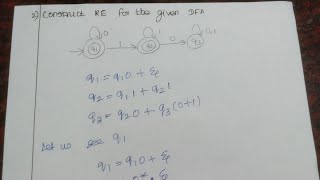 2) Construct RE for the given DFA
0 1 0,1
q1 1 q2 0 q3
q1 = q1 0 + ε
q2 = q1 1 + q2 1
q3 = q2 0 + q3 (0+1)
Let us q1
q1 = q1 0 + ε